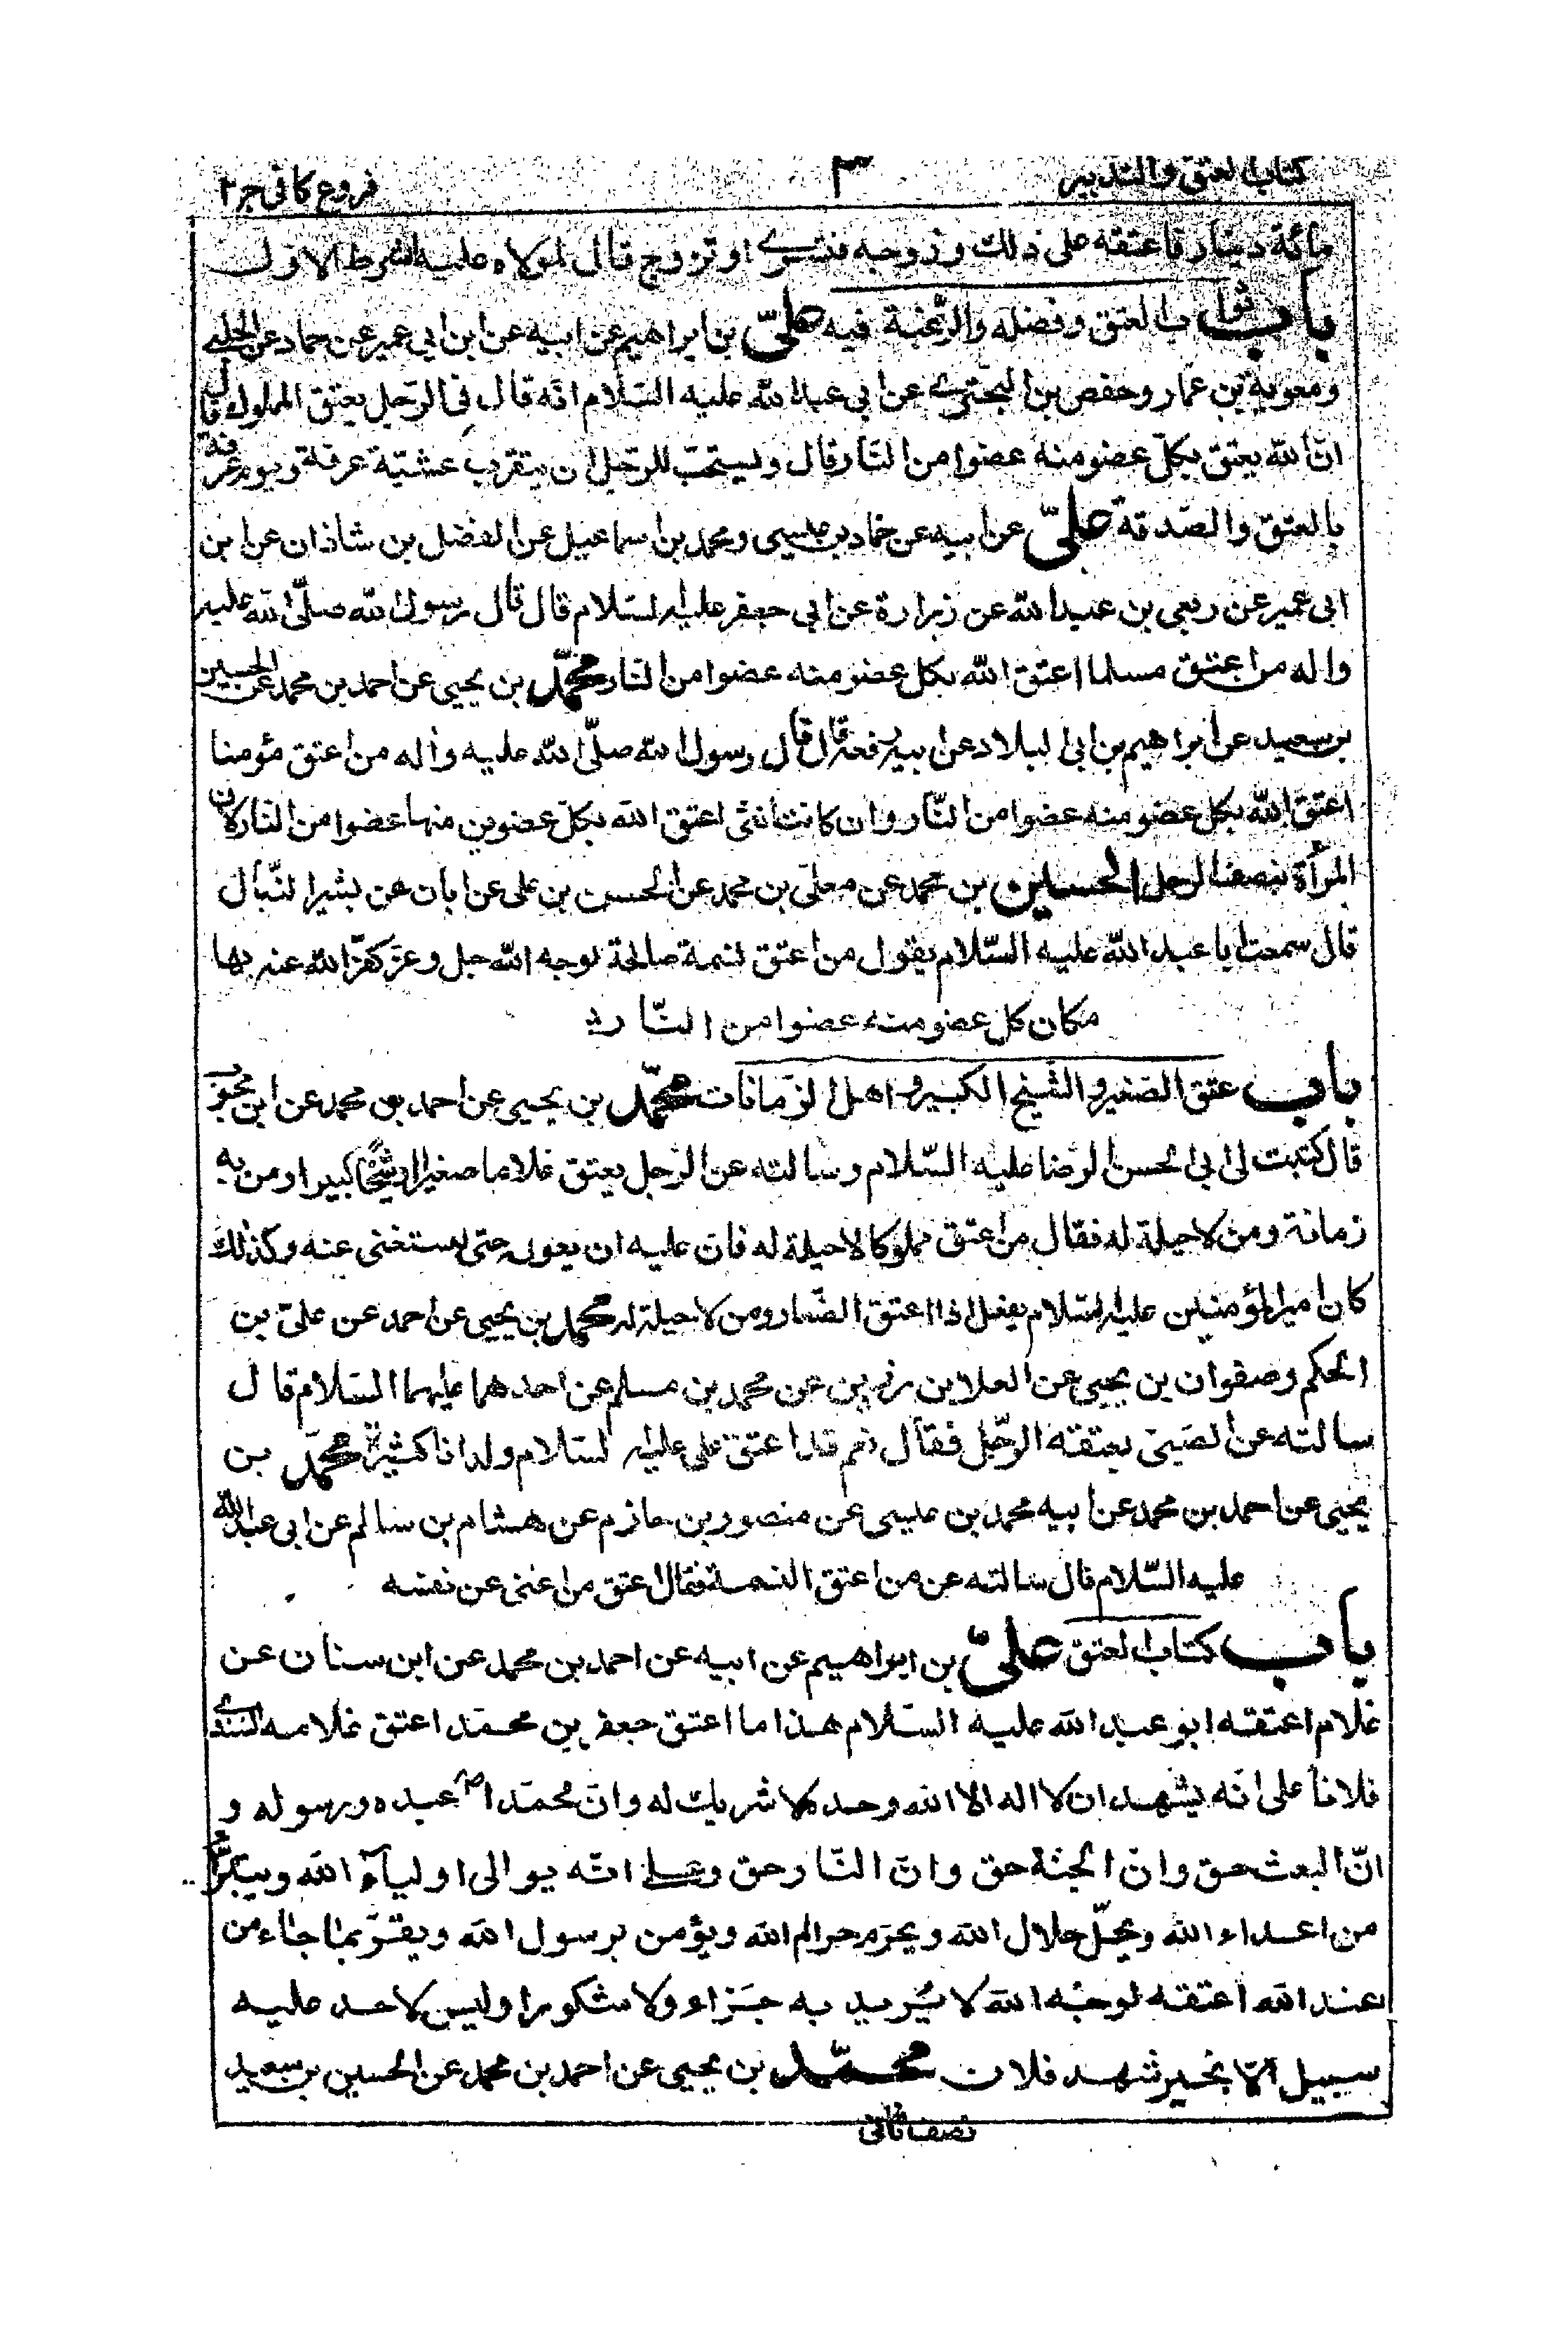 كتاب العتق والتدبير ٣ فروع كافى ج ٢
مائة دينار فاعتقه على ذلك وزوجه فتسرى او تزوج قال لمولاه عليه الشرط الاول
باب ثواب العتق وفضله والرغبة فيه علىّ بن ابراهيم عن ابيه عن ابن ابي عمير عن حماد عن الحلبي
ومعوية بن عمار وحفص بن البختري عن ابي عبد الله عليه السلام انه قال فى الرّجل يعتق المملوك قال
انّ الله يعتق بكلّ عضو منه عضوا من النّار قال ويستحبّ للرّجل ان يتقرب عشيّة عرفة ويوم عرفة
بالعتق والصّدقة علىّ عن ابيه عن حماد بن عيسى ومحمد بن اسماعيل عن الفضل بن شاذان عن ابن
ابى عمير عن ربعي بن عبد الله عن زرارة عن ابي جعفر عليه السّلام قال قال رسول الله صلّى الله عليه
واله من اعتق مسلما اعتق الله بكل عضو منه عضوا من النّار محمّد بن يحيى عن احمد بن محمد عن الحسين
بن سعيد عن ابراهيم بن ابى البلاد عن ابيه رفعه قال قال رسول الله صلّى الله عليه واله من اعتق مؤمنا
اعتق الله بكل عضو منه عضوا من النّار وان كانت انثى اعتق الله بكلّ عضوين منها عضوا من النّار لان
المرأة بنصف الرجل الحسين بن محمد عن معلّى بن محمد عن الحسن بن على عن ابان عن بشير النّبّال
قال سمعت ابا عبد الله عليه السّلام يقول من اعتق نسمة صالحة لوجه الله جل وعز كفّر الله عنه بها
مكان كل عضو منه عضوا من النّار
باب عتق الصّغير والشّيخ الكبير و اهل الزمانات محمّد بن يحيى عن احمد بن محمد عن ابن محبوب
قال كتبت الى ابى الحسن الرضا عليه السّلام وسالته عن الرّجل يعتق غلاما صغيرا او شيخًا كبيرا او من به
زمانة ومن لا حيلة له فقال من اعتق مملوكا لا حيلة له فان عليه ان يعوله حتى يستغنى عنه وكذلك
كان امير المؤمنين عليه السّلام يفعل اذا اعتق الصّغار ومن لا حيلة له محمد بن يحيى عن احمد عن علىّ بن
الحكم وصفوان بن يحيى عن العلا بن رزين عن محمد بن مسلم عن احدهما عليهما السّلام قال
سالته عن الصّبىّ يعتقه الرّجل فقال نعم قد اعتق على عليه السّلام ولدانا كثيرة محمّد بن
يحيى عن احمد بن محمد عن ابيه محمد بن عيسى عن منصور بن حازم عن هشام بن سالم عن ابى عبد الله
عليه السّلام قال سالته عن من اعتق النسمة فقال اعتق من اغنى عن نفسه
باب كتاب العتق علىّ بن ابراهيم عن ابيه عن احمد بن محمد عن ابن سنان عن
غلام اعتقه ابو عبد الله عليه السّلام هذا ما اعتق جعفر بن محمّد اعتق غلامه السّندى
فلانا على انّه يشهد ان لا اله الا الله وحده لا شريك له وانّ محمّدا ص عبده ورسوله و
انّ البعث حق وانّ الجنّة حق وانّ النّار حق وعلى انّه يوالى اولياء الله ويتبرّأ
من اعداء الله ويحلّ حلال الله ويحرّم حرام الله ويؤمن برسول الله ويقرّ بما جاء من
عند الله اعتقه لوجه الله لا يريد به جزاء ولا شكورا وليس لاحد عليه
سبيل الّا بخير شهد فلان محمّد بن يحيى عن احمد بن محمد عن الحسين بن سعيد
نصف ثانى